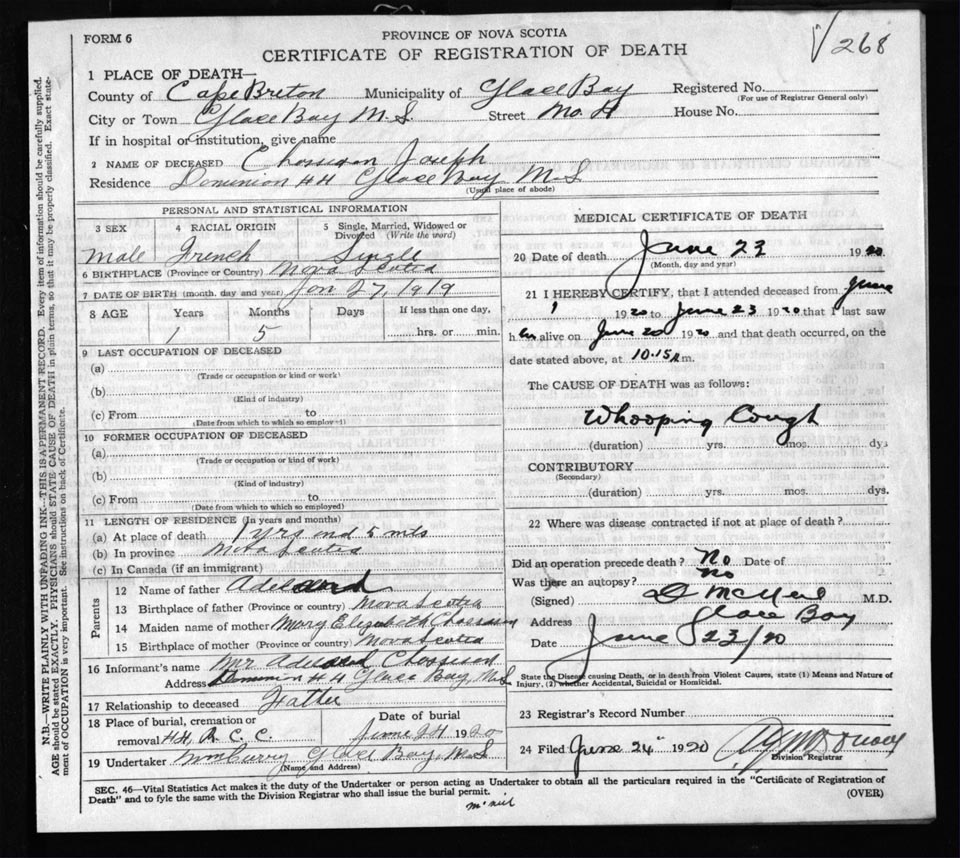 FORM 6
PROVINCE OF NOVA SCOTIA
√268
CERTIFICATE OF REGISTRATION OF DEATH
1 PLACE OF DEATH—
County of Cape Breton Municipality of Glace Bay Registered No.
(For use of Registrar General only)
City or Town Glace Bay N.S. Street No. 4 House No.
If in hospital or institution, give name
2 NAME OF DECEASED Chossigan Joseph
Residence Dominion #4 Glace Bay N.S
(Usual place of abode)
PERSONAL AND STATISTICAL INFORMATION
3 SEX 4 RACIAL ORIGIN 5 Single, Married, Widowed or Divorced (Write the word)
Male French Single
6 BIRTHPLACE (Province or Country) Nova Scotia
7 DATE OF BIRTH (month, day and year) Jan 27, 1919
8 AGE Years Months Days If less than one day,
1 5 hrs. or min.
9 LAST OCCUPATION OF DECEASED
(a)
(Trade or occupation or kind or work)
(b)
(Kind of industry)
(c) From to
(Date from which to which so employed)
10 FORMER OCCUPATION OF DECEASED
(a)
(Trade or occupation or kind of work)
(b)
(Kind of industry)
(c) From to
(Date from which to which so employed)
11 LENGTH OF RESIDENCE (In years and months)
(a) At place of death 1 yrs and 5 mts
(b) In province Nova Scotia
(c) In Canada (if an immigrant)
Parents
12 Name of father
13 Birthplace of father (Province or country) Nova Scotia
14 Maiden name of mother Mary Elizabeth
15 Birthplace of mother (Province or country) Nova Scotia
16 Informant's name Mr
Address Dominion #4 Glace Bay, N.S
17 Relationship to deceased Father
18 Place of burial, cremation or Date of burial
removal #4, R. C. C. June 24 1920
19 Undertaker Wm Curry Glace Bay, N.S
(Name and Address)
MEDICAL CERTIFICATE OF DEATH
20 Date of death June 23 1920
(Month, day and year)
21 I HEREBY CERTIFY, that I attended deceased from June
1 1920 to June 23 1920 that I last saw
him alive on June 20 1920 and that death occurred, on the
date stated above, at 10.15 m.
The CAUSE OF DEATH was as follows:
Whooping Cough
(duration) yrs. mos. dys
CONTRIBUTORY
(Secondary)
(duration) yrs. mos. dys.
22 Where was disease contracted if not at place of death?
Did an operation precede death? No Date of
Was there an autopsy? No
(Signed) McNeil M.D.
Address Glace Bay
Date June 23/20
State the Disease causing Death, or in death from Violent Causes, state (1) Means and Nature of
Injury, (2) whether Accidental, Suicidal or Homicidal.
23 Registrar's Record Number
24 Filed June 24 1920
Division Registrar
SEC. 46—Vital Statistics Act makes it the duty of the Undertaker or person acting as Undertaker to obtain all the particulars required in the "Certificate of Registration of
Death" and to fyle the same with the Division Registrar who shall issue the burial permit. (OVER)
McNeil
N.B.—WRITE PLAINLY WITH UNFADING INK—THIS IS A PERMANENT RECORD. Every item of information should be carefully supplied.
AGE should be stated EXACTLY. PHYSICIANS should STATE CAUSE OF DEATH in plain terms, so that it may be properly classified. Exact state-
ment of OCCUPATION is very important. See instructions on back of Certificate.